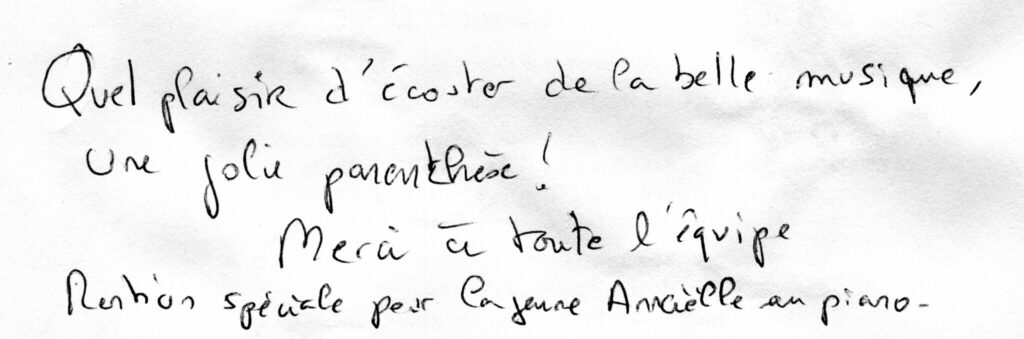 Quel plaisir d'écouter de la belle musique,
une jolie parenthèse !
Merci à toute l'équipe
Mention spéciale pour la jeune au piano-